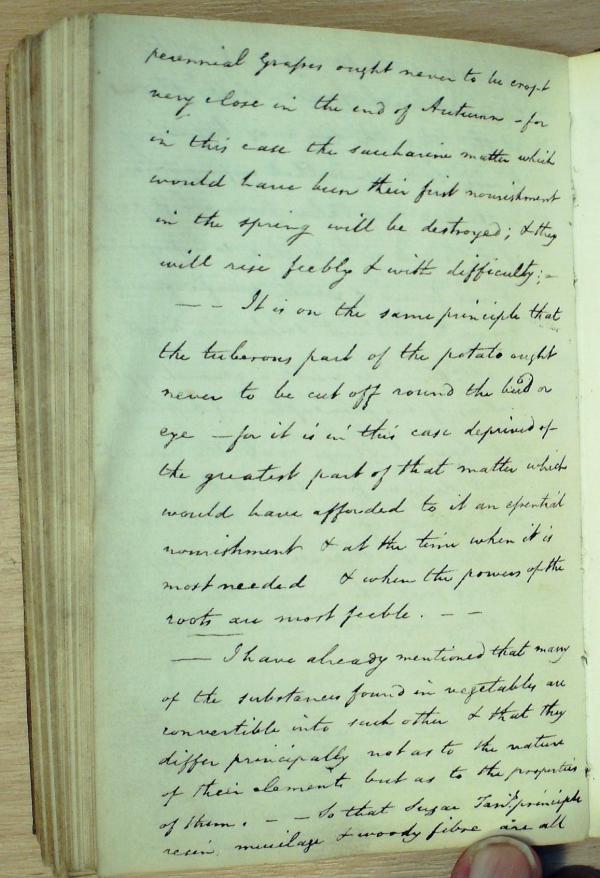 perennial Grapes ought never to be cropt
very close in the end of Autumn - for
in this case the saccharine matter which
would have been their first nourishment
in the spring will be destroyed; & they
will rise feebly & with difficulty; -
— — It is on the same principle that
the tuberous part of the potato ought
never to be cut off round the bud or
eye — for it is in this case deprived of
the greatest part of that matter which
would have afforded to it an essential
nourishment & at the time when it is
most needed & when the powers of the
roots are most feeble. — —
— I have already mentioned that many
of the substances found in vegetables are
convertible into each other & that they
differ principally not as to the nature
of their elements but as to the properties
of them. — — So that Sugar Tan.n principle
resin, mucilage & woody fibre are all